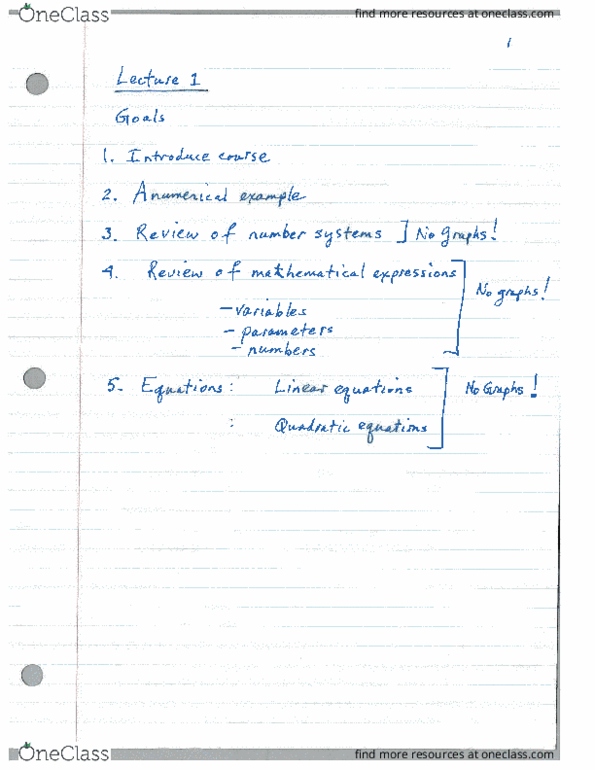 OneClass find more resources at oneclass.com
1
Lecture 1
Goals
1. Introduce course
2. A numerical example
3. Review of number systems ] No Graphs!
4. Review of mathematical expressions
No graphs!
- variables
- parameters
- numbers
5. Equations : Linear equations No Graphs!
: Quadratic equations
OneClass find more resources at oneclass.com